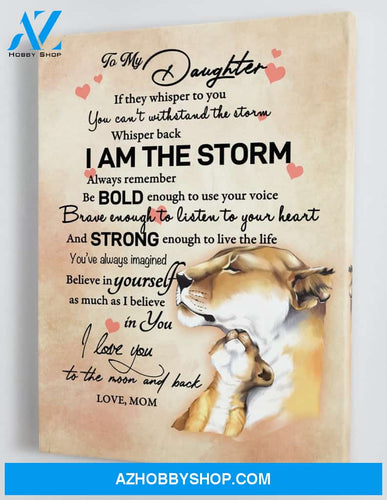 AZ
HOBBY SHOP
To My Daughter
If they whisper to you
You can't withstand the storm
Whisper back
I AM THE STORM
Always remember
Be BOLD enough to use your voice
Brave enough to listen to your heart
And STRONG enough to live the life
You've always imagined
Believe in yourself
as much as I believe
in You
I love you
to the moon and back
LOVE, MOM
AZHOBBYSHOP.COM